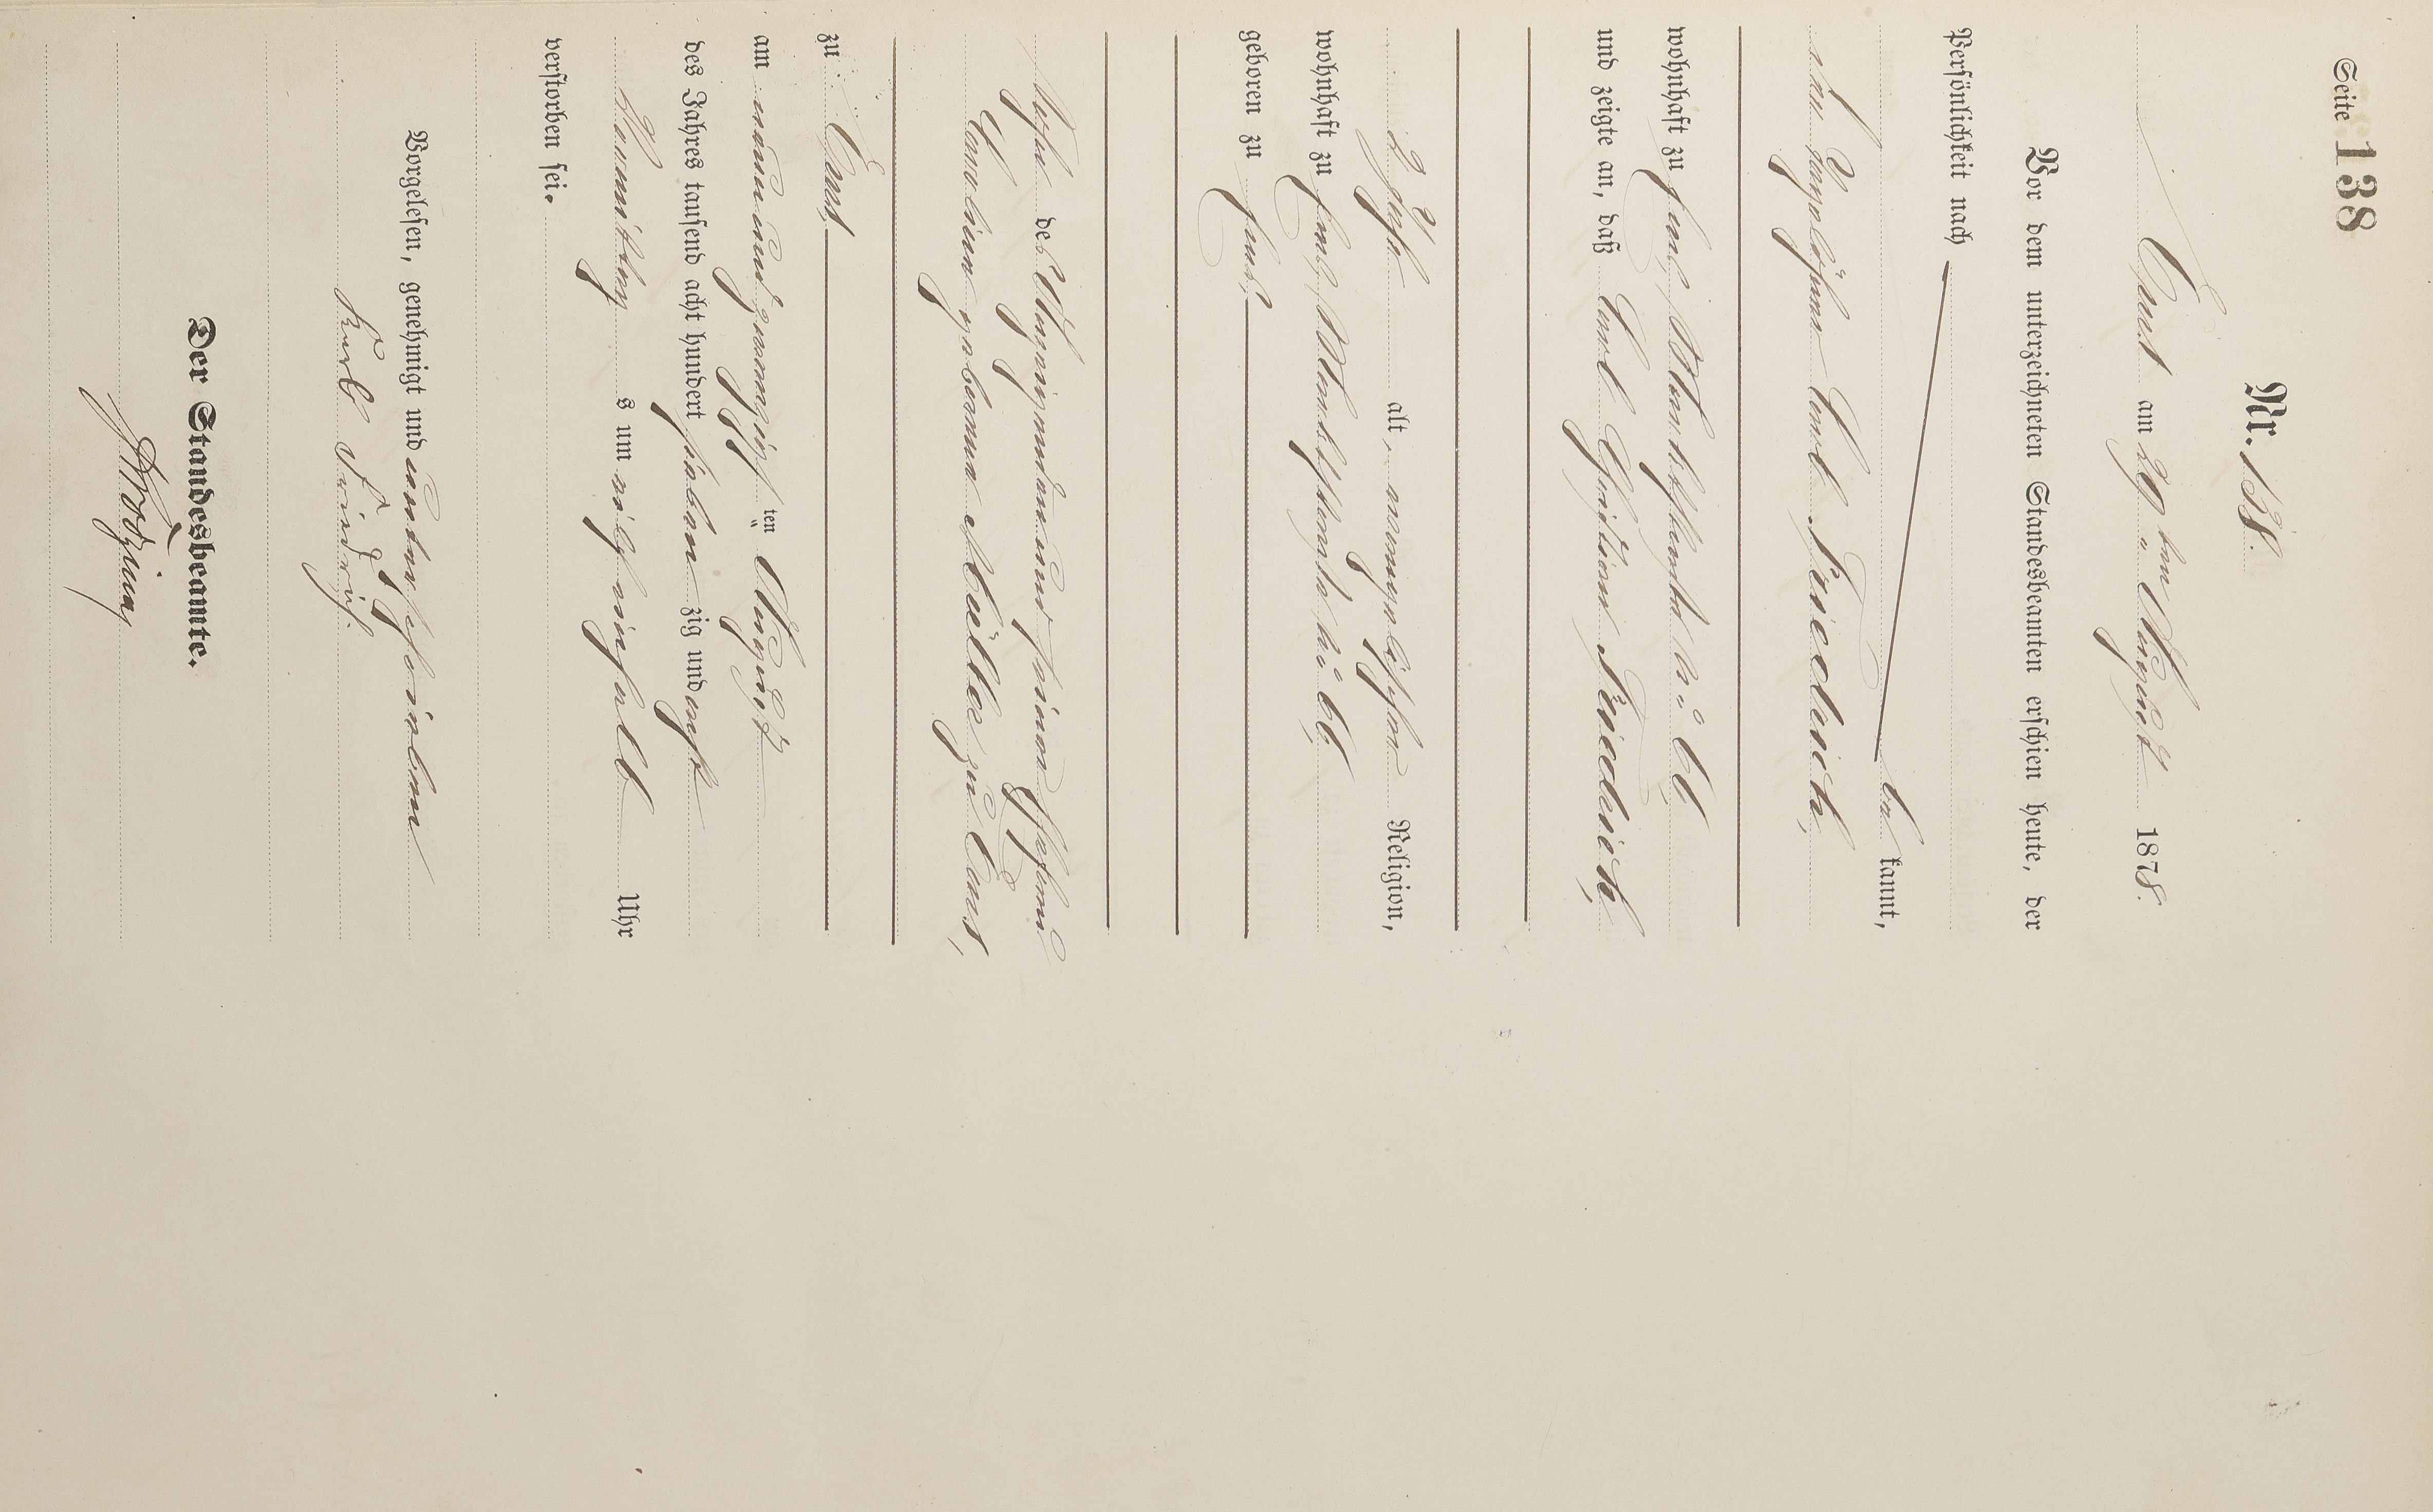 Seite 138
Nr. 138.
Ems am 29 ten August 1878.
Vor dem unterzeichneten Standesbeamten erschien heute, der
Persönlichkeit nach
be kannt,
der Tagelöhner Carl Friedrich,
wohnhaft zu Ems,
und zeigte an, daß Carl Christian Friedrich,
alt, evangelischer Religion,
wohnhaft zu Ems,
geboren zu Ems,
Sohn des Anzeigenden und seiner Ehefrau
Caroline geborene Müller zu Ems,
zu Ems,
am neunundzwanzigsten August
des Jahres tausend acht hundert sieben zig und acht
Vormittag s um elf einhalb Uhr
verstorben sei.
Vorgelesen, genehmigt und unterschrieben
Karl Friedrich.
Der Standesbeamte.